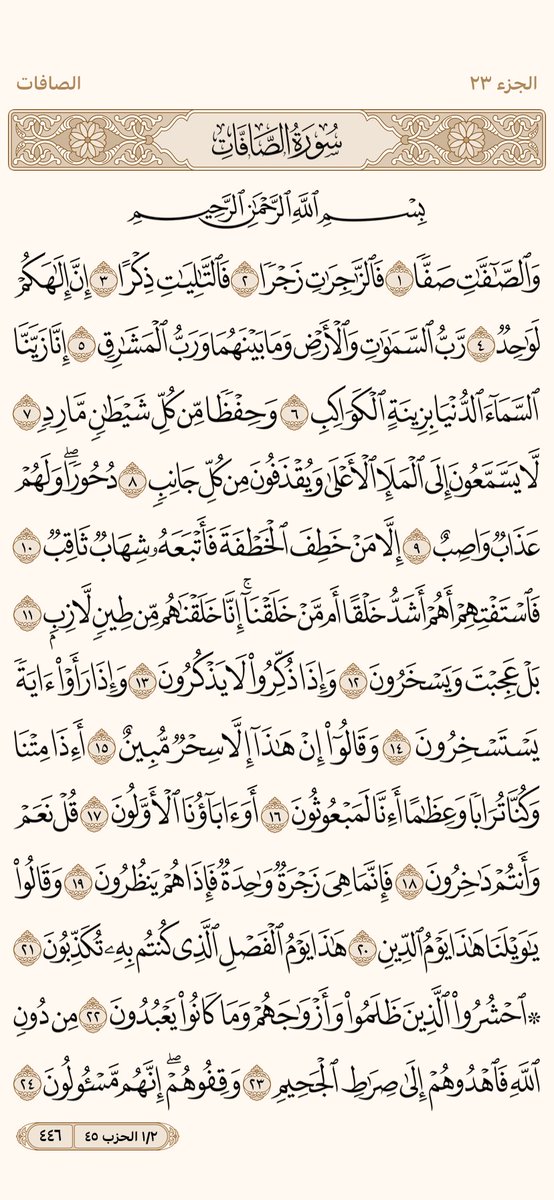 الجزء ٢٣
الصافات
سُورَةُ الصَّافَّاتِ
بِسْمِ ٱللَّهِ ٱلرَّحْمَٰنِ ٱلرَّحِيمِ
وَٱلصَّٰٓفَّٰتِ صَفًّا ١ فَٱلزَّٰجِرَٰتِ زَجْرًا ٢ فَٱلتَّٰلِيَٰتِ ذِكْرًا ٣ إِنَّ إِلَٰهَكُمْ
لَوَٰحِدٌ ٤ رَّبُّ ٱلسَّمَٰوَٰتِ وَٱلْأَرْضِ وَمَا بَيْنَهُمَا وَرَبُّ ٱلْمَشَٰرِقِ ٥ إِنَّا زَيَّنَّا
ٱلسَّمَآءَ ٱلدُّنْيَا بِزِينَةٍ ٱلْكَوَاكِبِ ٦ وَحِفْظًا مِّن كُلِّ شَيْطَٰنٍ مَّارِدٍ ٧
لَّا يَسَّمَّعُونَ إِلَى ٱلْمَلَإِ ٱلْأَعْلَىٰ وَيُقْذَفُونَ مِن كُلِّ جَانِبٍ ٨ دُحُورًا ۖ وَلَهُمْ
عَذَابٌ وَاصِبٌ ٩ إِلَّا مَنْ خَطِفَ ٱلْخَطْفَةَ فَأَتْبَعَهُۥ شِهَابٌ ثَاقِبٌ ١٠
فَٱسْتَفْتِهِمْ أَهُمْ أَشَدُّ خَلْقًا أَم مَّنْ خَلَقْنَآ ۚ إِنَّا خَلَقْنَٰهُم مِّن طِينٍ لَّازِبٍۭ ١١
بَلْ عَجِبْتَ وَيَسْخَرُونَ ١٢ وَإِذَا ذُكِّرُوا۟ لَا يَذْكُرُونَ ١٣ وَإِذَا رَأَوْا۟ ءَايَةً
يَسْتَسْخِرُونَ ١٤ وَقَالُوٓا۟ إِنْ هَٰذَآ إِلَّا سِحْرٌ مُّبِينٌ ١٥ أَءِذَا مِتْنَا
وَكُنَّا تُرَابًا وَعِظَٰمًا أَءِنَّا لَمَبْعُوثُونَ ١٦ أَوَءَابَآؤُنَا ٱلْأَوَّلُونَ ١٧ قُلْ نَعَمْ
وَأَنتُمْ دَٰخِرُونَ ١٨ فَإِنَّمَا هِىَ زَجْرَةٌ وَٰحِدَةٌ فَإِذَا هُمْ يَنظُرُونَ ١٩ وَقَالُوا۟
يَٰوَيْلَنَا هَٰذَا يَوْمُ ٱلدِّينِ ٢٠ هَٰذَا يَوْمُ ٱلْفَصْلِ ٱلَّذِى كُنتُم بِهِۦ تُكَذِّبُونَ ٢١
۞ ٱحْشُرُوا۟ ٱلَّذِينَ ظَلَمُوا۟ وَأَزْوَٰجَهُمْ وَمَا كَانُوا۟ يَعْبُدُونَ ٢٢ مِن دُونِ
ٱللَّهِ فَٱهْدُوهُمْ إِلَىٰ صِرَٰطِ ٱلْجَحِيمِ ٢٣ وَقِفُوهُمْ ۖ إِنَّهُم مَّسْـُٔولُونَ ٢٤
١/٢ الحزب ٤٥
٤٤٦